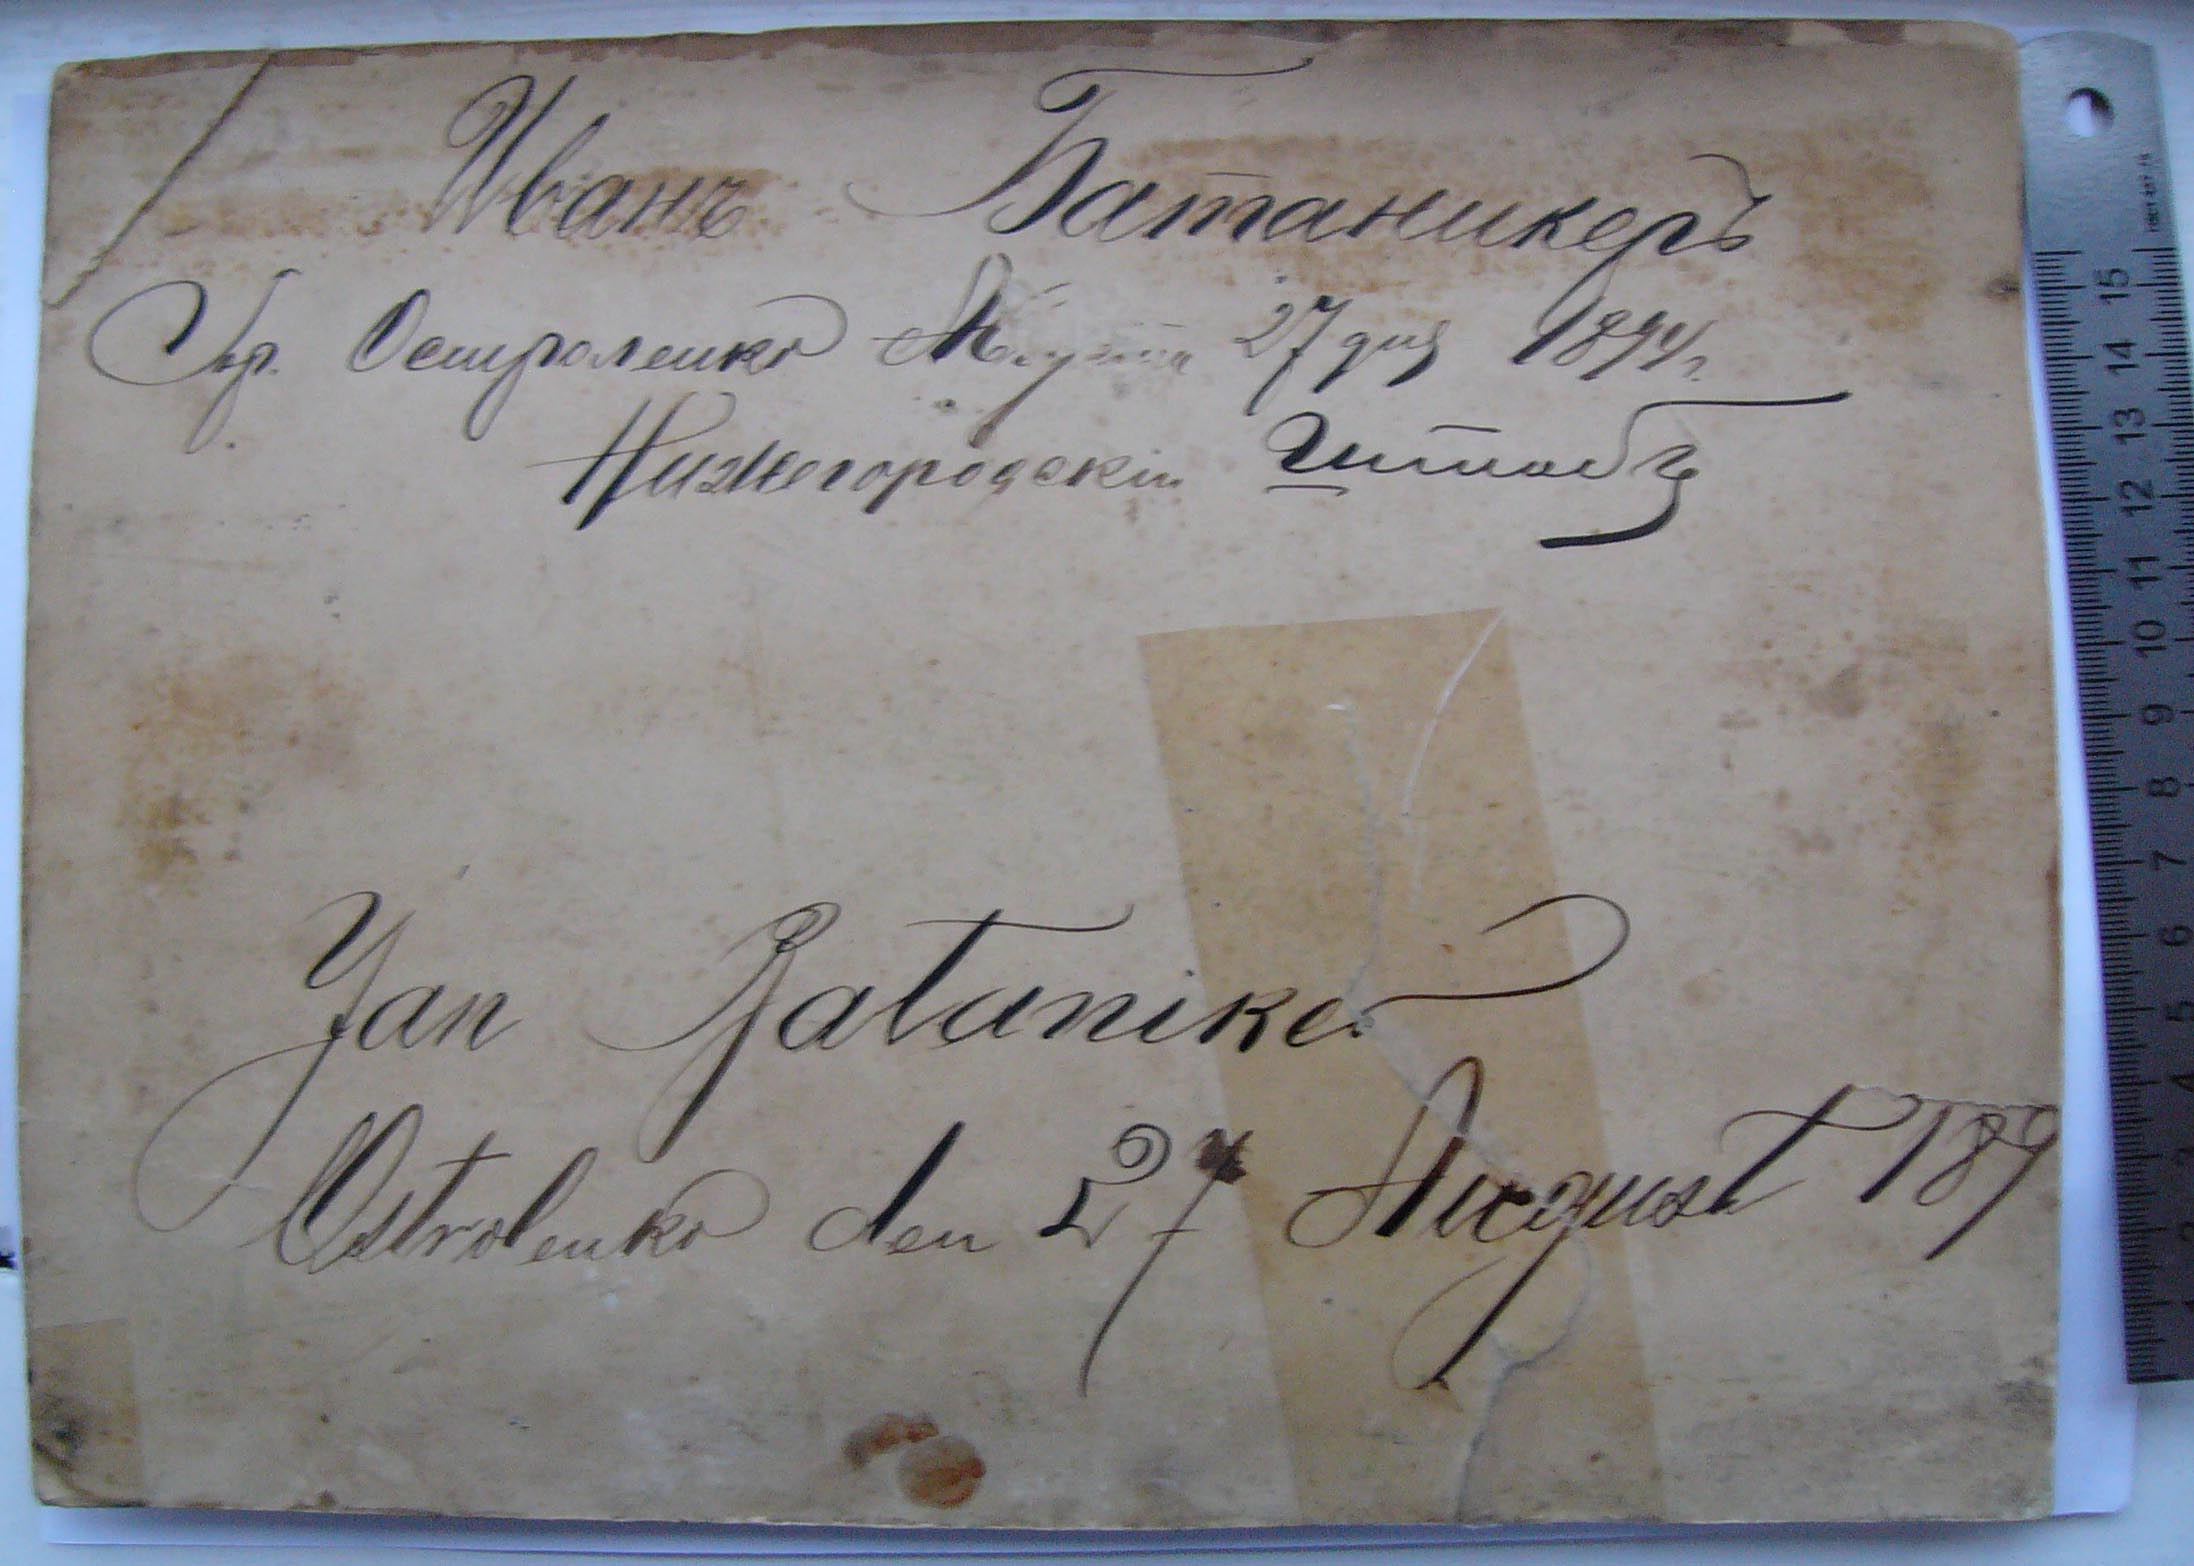 Иванъ Батаникеръ
Гор. Остроленко Августа 27 дня 1894 г.
Нижегородскій Штабъ
Jan Bataniker
Ostrolenko den 27 August 189
15 14 13 12 11 10 9 8 7 6 5 4 3 2